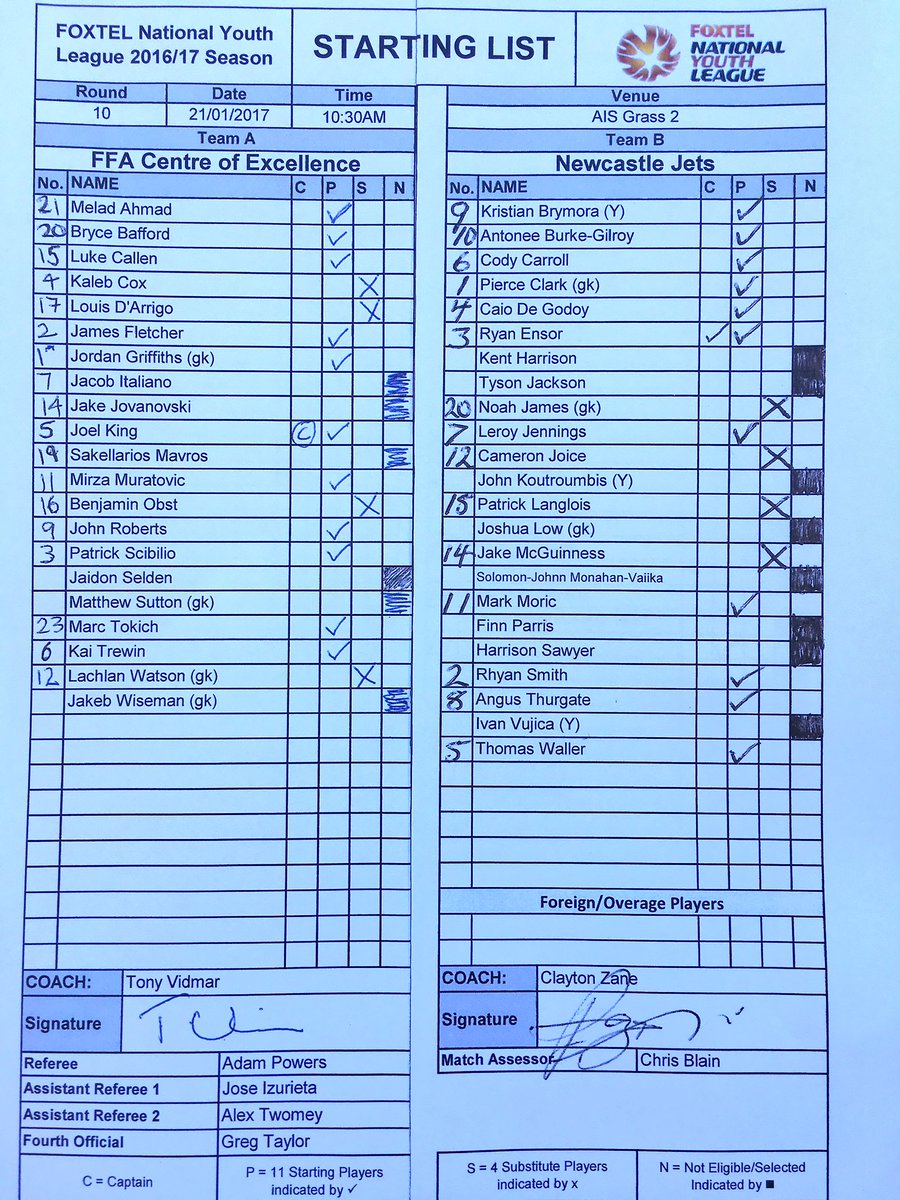 FOXTEL National Youth
League 2016/17 Season
STARTING LIST
FOXTEL
NATIONAL
YOUTH
LEAGUE
Round Date Time
10 21/01/2017 10:30AM
Venue
AIS Grass 2
Team A
FFA Centre of Excellence
No. NAME C P S N
21 Melad Ahmad ✓
20 Bryce Bafford ✓
15 Luke Callen ✓
4 Kaleb Cox X
17 Louis D'Arrigo X
2 James Fletcher ✓
1 Jordan Griffiths (gk) ✓
7 Jacob Italiano
14 Jake Jovanovski
5 Joel King C ✓
Sakellarios Mavros
11 Mirza Muratovic ✓
16 Benjamin Obst X
9 John Roberts ✓
3 Patrick Scibilio ✓
Jaidon Selden
Matthew Sutton (gk)
23 Marc Tokich ✓
6 Kai Trewin ✓
12 Lachlan Watson (gk) X
Jakeb Wiseman (gk)
COACH: Tony Vidmar
Signature
Referee Adam Powers
Assistant Referee 1 Jose Izurieta
Assistant Referee 2 Alex Twomey
Fourth Official Greg Taylor
C = Captain
P = 11 Starting Players
indicated by ✓
Team B
Newcastle Jets
No. NAME C P S N
9 Kristian Brymora (Y) ✓
10 Antonee Burke-Gilroy ✓
6 Cody Carroll ✓
1 Pierce Clark (gk) ✓
4 Caio De Godoy ✓
3 Ryan Ensor ✓ ✓
Kent Harrison
Tyson Jackson
20 Noah James (gk) X
7 Leroy Jennings ✓
12 Cameron Joice X
John Koutroumbis (Y)
15 Patrick Langlois X
Joshua Low (gk)
14 Jake McGuinness X
Solomon-Johnn Monahan-Vaiika
11 Mark Moric ✓
Finn Parris
Harrison Sawyer
2 Rhyan Smith ✓
8 Angus Thurgate ✓
Ivan Vujica (Y)
5 Thomas Waller ✓
Foreign/Overage Players
COACH: Clayton Zane
Signature
Match Assessor Chris Blain
S = 4 Substitute Players
indicated by x
N = Not Eligible/Selected
Indicated by ■